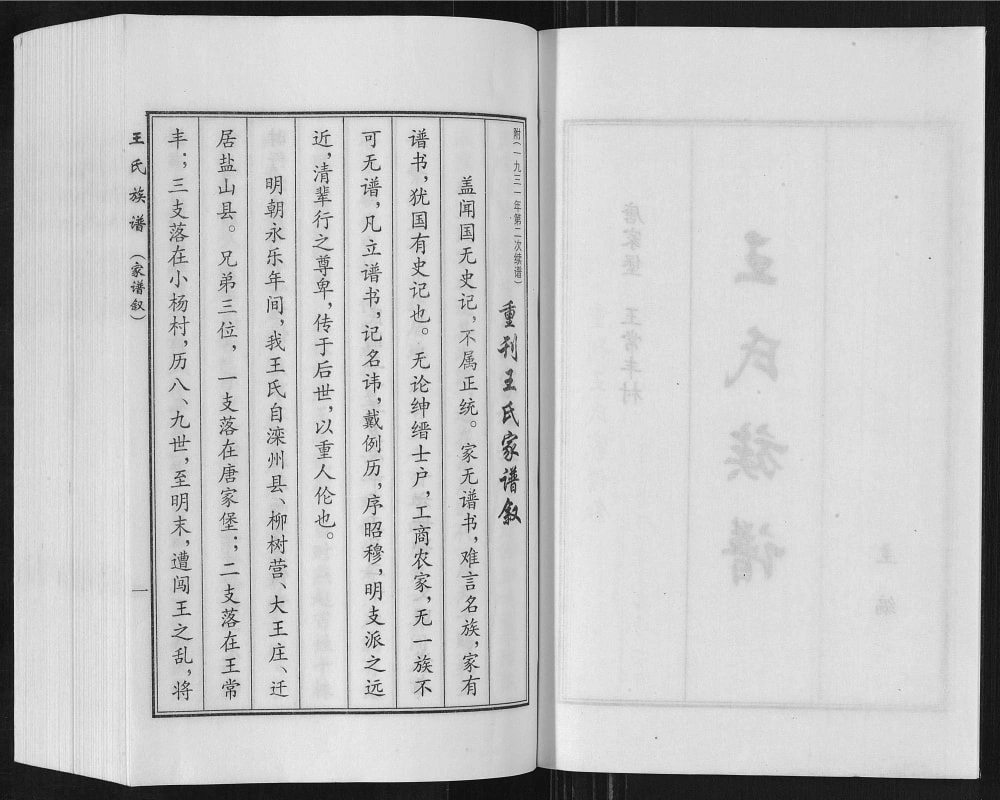 附(一九三一年第二次续谱)重刊王氏家谱叙
盖闻国无史记,不属正统。家无谱书,难言名族,家有
谱书,犹国有史记也。无论绅缙士户,工商农家,无一族不
可无谱,凡立谱书,记名讳,戴例历,序昭穆,明支派之远
近,清辈行之尊卑,传于后世,以重人伦也。
明朝永乐年间,我王氏自滦州县、柳树营、大王庄、迁
居盐山县。兄弟三位,一支落在唐家堡;二支落在王常
丰;三支落在小杨村,历八、九世,至明末,遭闯王之乱,将
王氏族谱(家谱叙)
一
唐家堡 王常丰村
王氏族谱
主编